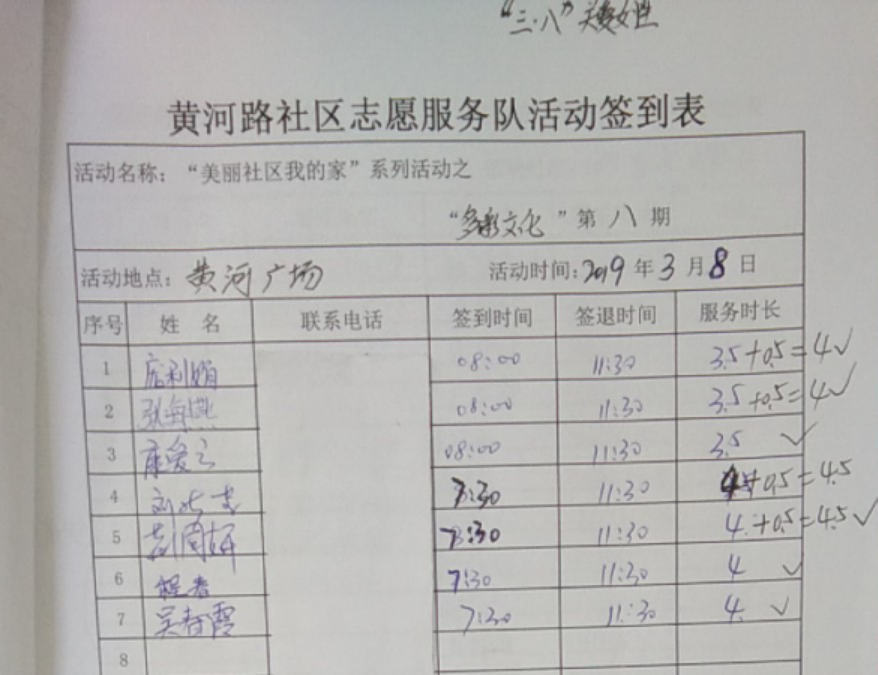 “三·八”关爱女性
黄河路社区志愿服务队活动签到表
活动名称：“美丽社区我的家”系列活动之
“多彩文化”第八期
活动地点：黄河广场 活动时间：2019年3月8日
序号 姓名 联系电话 签到时间 签退时间 服务时长
1 08:00 11:30 3.5+0.5=4✓
2 张海燕 08:00 11:30 3.5+0.5=4✓
3 康爱云 08:00 11:30 3.5 ✓
4 7:30 11:30 4+0.5=4.5
5 7:30 11:30 4.+0.5=4.5✓
6 程春 7:30 11:30 4 ✓
7 吴春霞 7:30 11:30 4. ✓
8